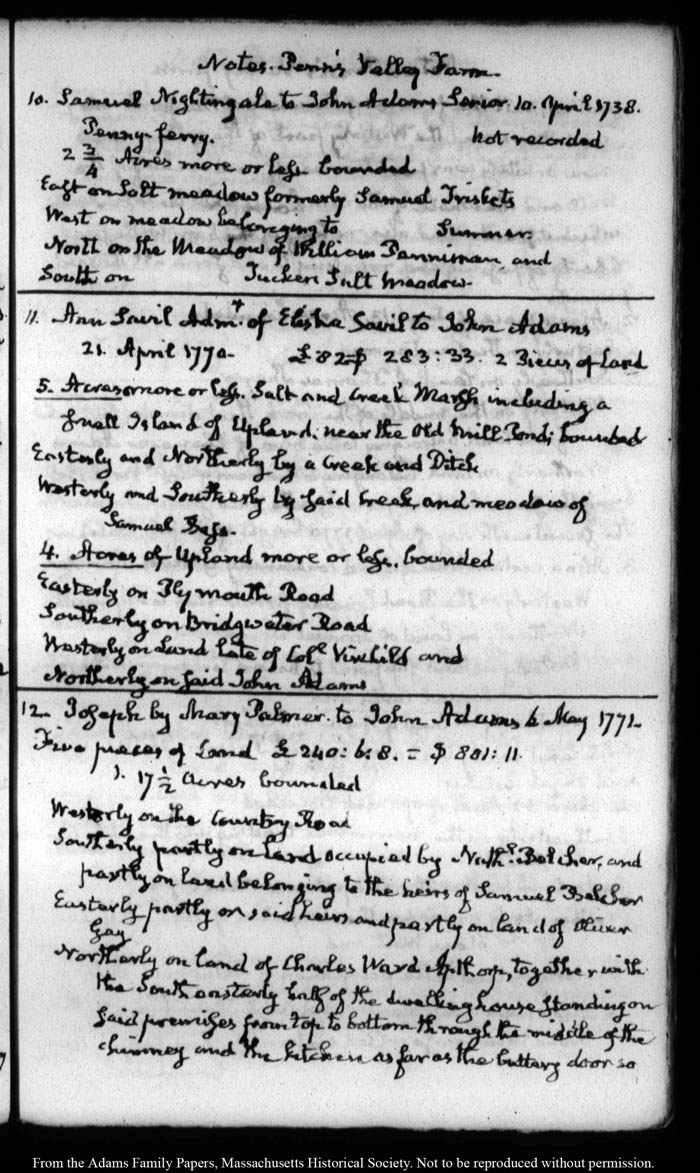 Notes. Penn's Valley Farm.
10. Samuel Nightingale to John Adams Senior. 10. April 1738.
Penny-ferry. not recorded
2 3/4 Acres more or less. bounded
East on Salt meadow formerly Samuel Triskets
West on meadow belonging to Sumner.
North on the Meadow of William Penniman and
South on Tucker Salt Meadow.
11. Ann Savil Admx. of Elisha Savil to John Adams
21. April 1770. £82=$ 283:33. 2 Pieces of Land
5. Acres more or less. Salt and Creek Marsh including a
small Island of Upland; near the Old Mill Pond; bounded
Easterly and Northerly by a Creek and Ditch
Westerly and Southerly by said Creek, and meadow of
Samuel Bass.
4. Acres of Upland more or less. bounded
Easterly on Plymouth Road
Southerly on Bridgwater Road
Westerly on Land late of Coll. and
Northerly on said John Adams
12. Joseph by Mary Palmer. to John Adams 6 May 1771.
Five pieces of Land £240:6:8. = $ 801:11.
1. 17 1/2 Acres bounded
Westerly on the Country Road
Southerly partly on land occupied by Nathl. Belcher, and
partly on land belonging to the heirs of Samuel Belcher
Easterly partly on said heirs and partly on land of Oliver
Gay
Northerly on land of Charles Ward Apthorp, together with
the South easterly half of the dwelling house standing on
said premises from top to bottom through the middle of the
chimney and the kitchen as far as the buttery door so
From the Adams Family Papers, Massachusetts Historical Society. Not to be reproduced without permission.